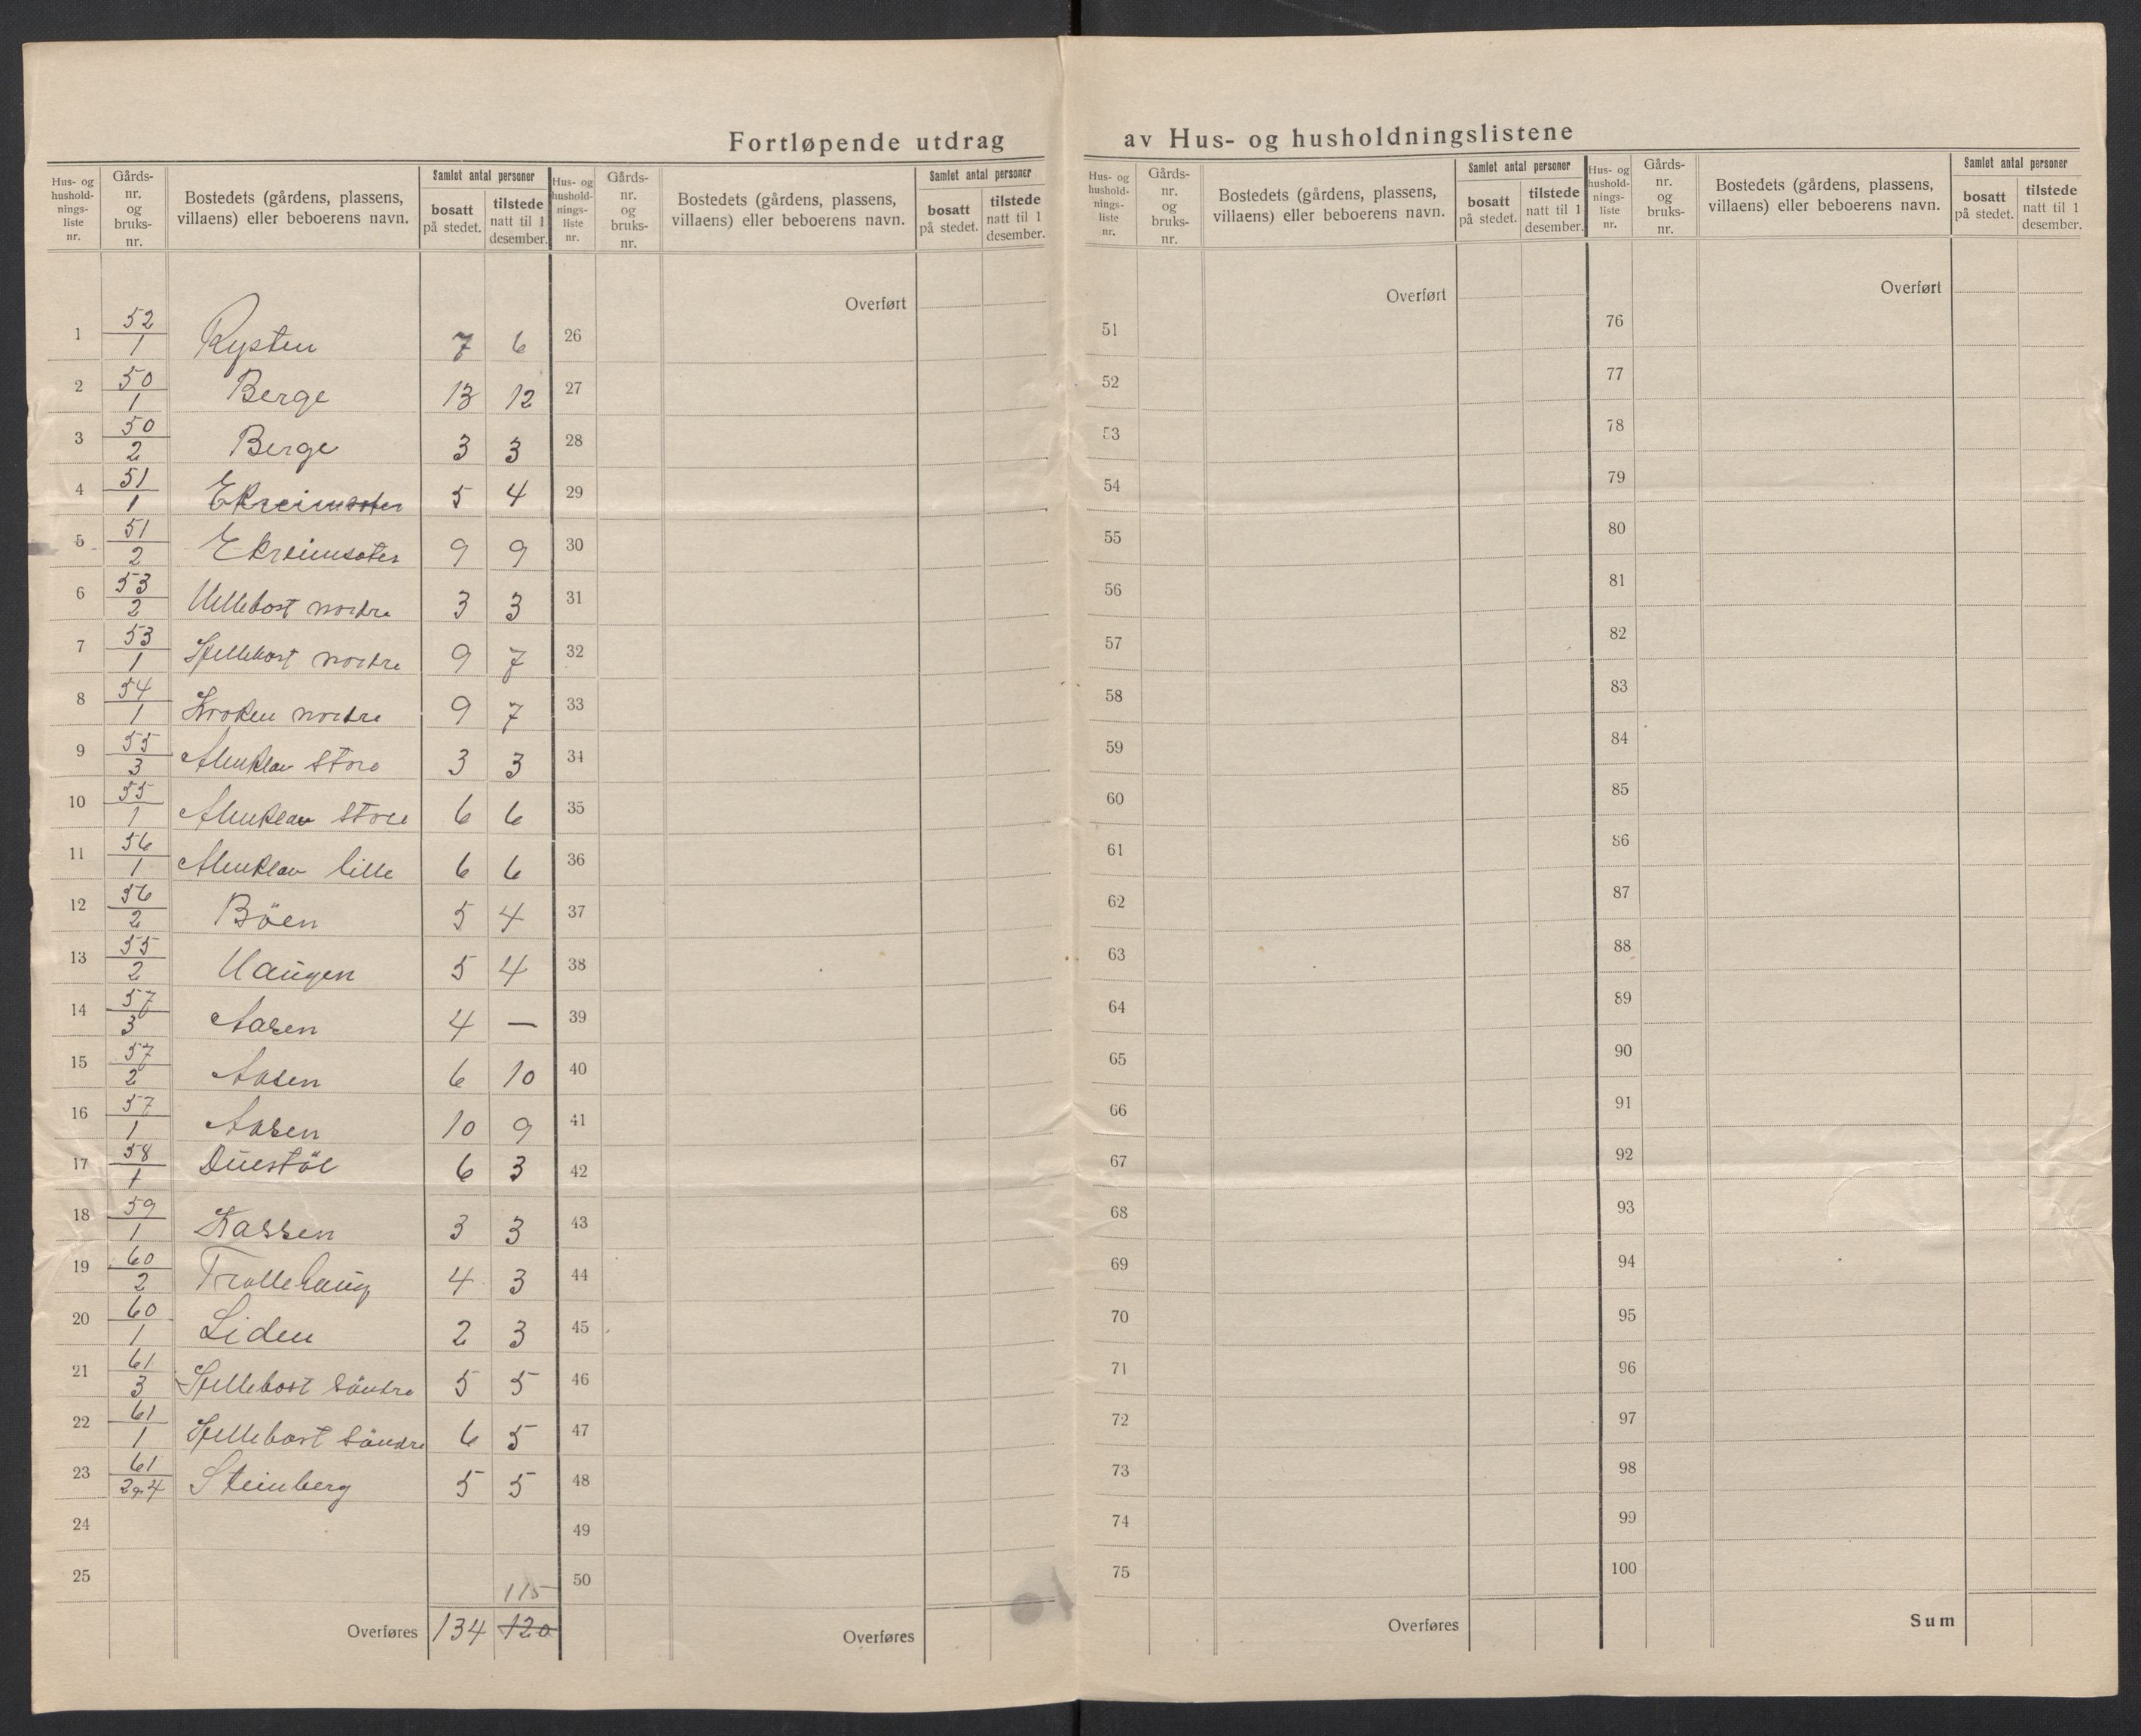 Fortløpende utdrag av Hus- og husholdningslistene
Hus- og hushold-nings-liste nr. Gårds-nr. og bruks-nr. Bostedets (gårdens, plassens, villaens) eller beboerens navn. Samlet antal personer bosatt på stedet. tilstede natt til 1 desember.
Hus- og hushold-nings-liste nr. Gårds-nr. og bruks-nr. Bostedets (gårdens, plassens, villaens) eller beboerens navn. Samlet antal personer bosatt på stedet. tilstede natt til 1 desember.
Hus- og hushold-nings-liste nr. Gårds-nr. og bruks-nr. Bostedets (gårdens, plassens, villaens) eller beboerens navn. Samlet antal personer bosatt på stedet. tilstede natt til 1 desember.
Hus- og hushold-nings-liste nr. Gårds-nr. og bruks-nr. Bostedets (gårdens, plassens, villaens) eller beboerens navn. Samlet antal personer bosatt på stedet. tilstede natt til 1 desember.
Overført Overført Overført
1 52/1 Rysten 7 6 26 51 76
2 50/1 Berge 13 12 27 52 77
3 50/2 Berge 3 3 28 53 78
4 51/1 5 4 29 54 79
5 51/2 9 9 30 55 80
6 53/2 Hellebost nordre 3 3 31 56 81
7 53/1 Hellebost nordre 9 7 32 57 82
8 54/1 Kroken nordre 9 7 33 58 83
9 55/3 Almklov store 3 3 34 59 84
10 55/1 Almklov store 6 6 35 60 85
11 56/1 Almklov lille 6 6 36 61 86
12 56/2 Böen 5 4 37 62 87
13 55/2 Haugen 5 4 38 63 88
14 57/3 Aasen 4 — 39 64 89
15 57/2 Aasen 6 10 40 65 90
16 57/1 Aasen 10 9 41 66 91
17 58/1 Duestöl 6 3 42 67 92
18 59/1 Kassen 3 3 43 68 93
19 60/2 Trollehaug 4 3 44 69 94
20 60/1 Liden 2 3 45 70 95
21 61/3 Hellebost söndre 5 5 46 71 96
22 61/1 Hellebost söndre 6 5 47 72 97
23 61/2 4 Steinberg 5 5 48 73 98
24 49 74 99
25 115 50 75 100
Overføres 134 120 Overføres Overføres Sum